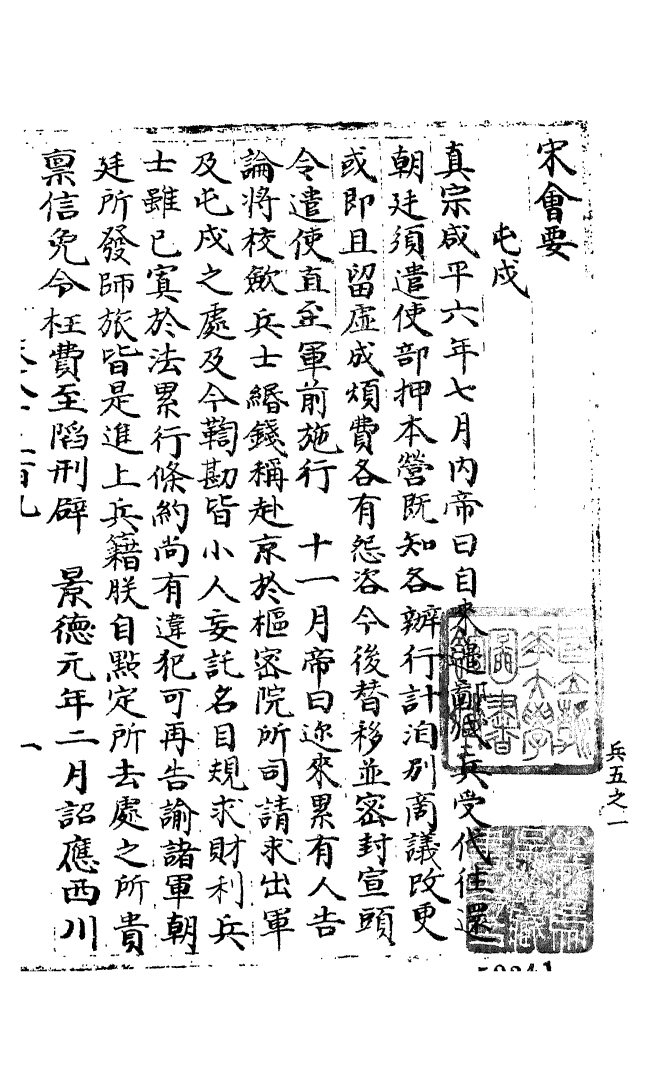 宋會要
屯戍
真宗咸平六年七月內帝曰自來遣戍兵受代往還
朝廷須遣使部押本營既知各辦行計洎別商議改更
或即且留虛成煩費各有怨咨今後替移並密封宣頭
令遣使直至軍前施行　十一月帝曰迩來累有人告
論將校歛兵士緡錢稱赴京於樞密院所司請求出軍
及屯戍之處及令鞫勘皆小人妄託名目規求財利兵
士雖已寘於法累行條約尚有違犯可再告諭諸軍朝
廷所發師旅皆是進上兵籍朕自點定所去處之所貴
稟信免令枉費至䧟刑辟　景德元年二月詔應西川
一
兵五之一